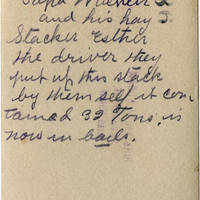 Papa
and his hay
Stacker Esther
the driver they
put up this stack
by them self it con
tained 32 Tons, is
now in bails.